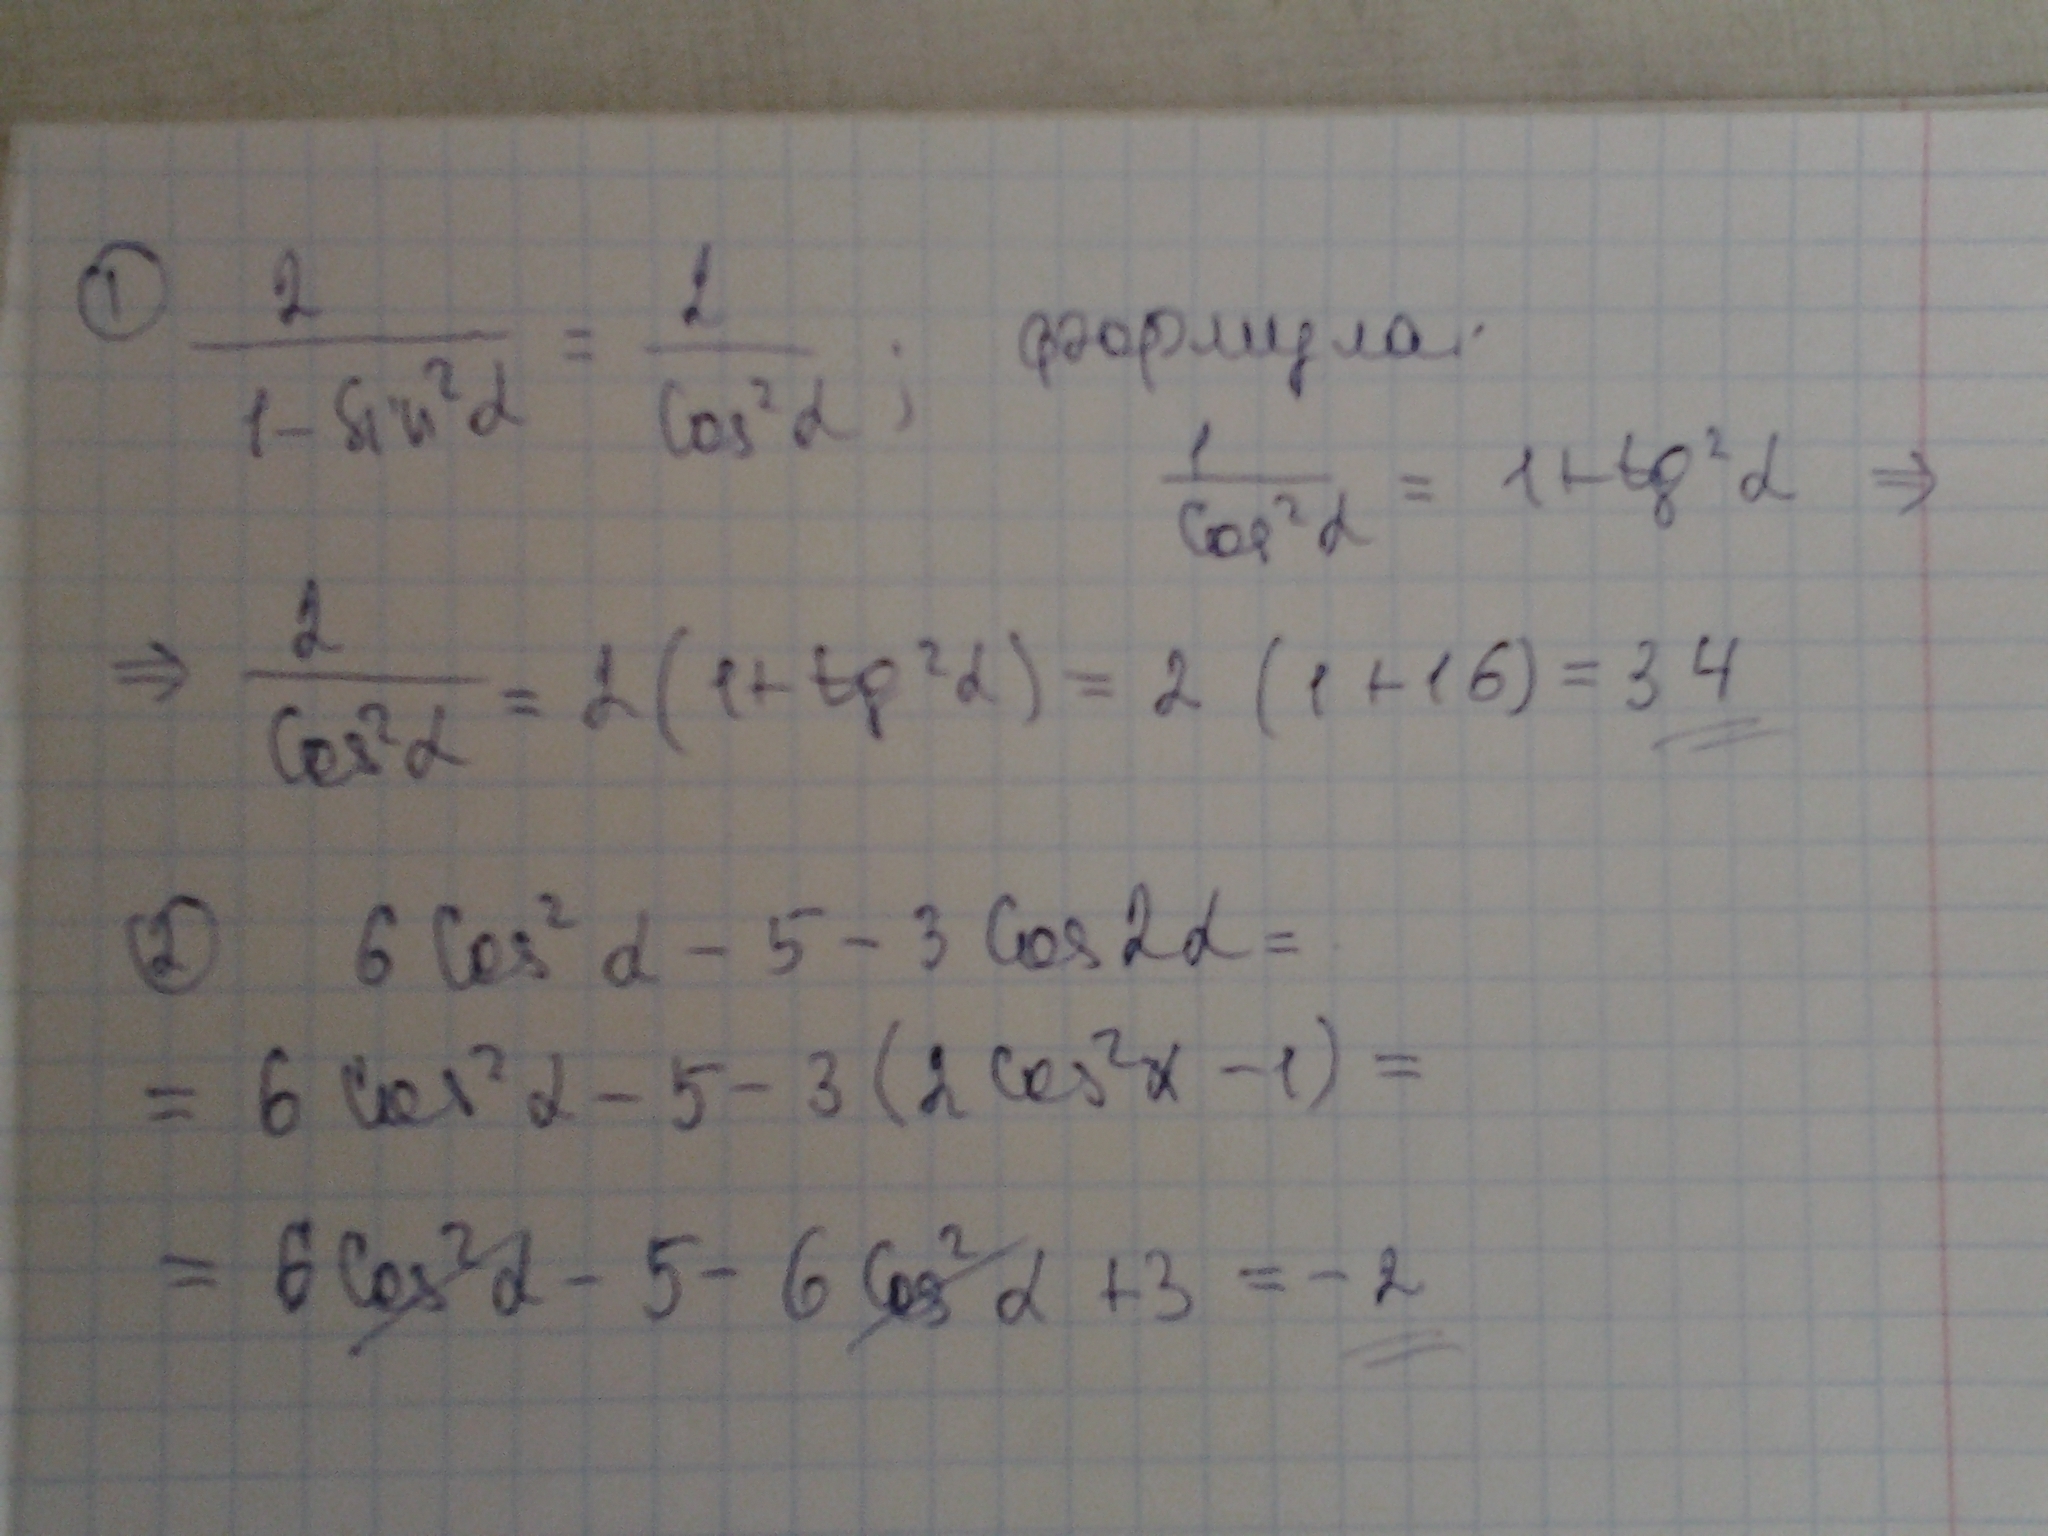 ① 2/(1-Sin²α) = 2/Cos²α ; формула:
1/Cos²α = 1+tg²α ⇒
⇒ 2/Cos²α = 2(1+tg²α) = 2 (1+16) = 34
② 6 Cos² α - 5 - 3 Cos 2α =
= 6 Cos² α - 5 - 3 (2 Cos² x - 1) =
= 6 Cos² α - 5 - 6 Cos² α + 3 = - 2